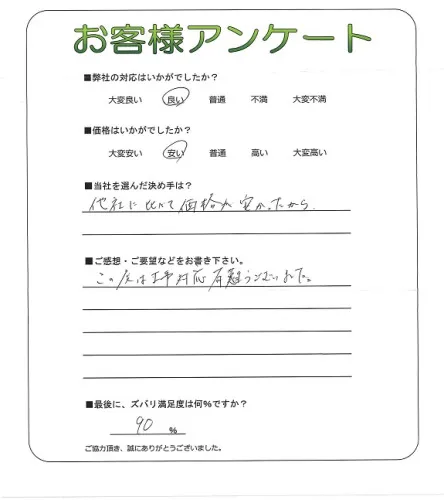 お客様アンケート
■弊社の対応はいかがでしたか？
大変良い 良い 普通 不満 大変不満
■価格はいかがでしたか？
大変安い 安い 普通 高い 大変高い
■当社を選んだ決め手は？
他社に比べて価格が安かったから
■ご感想・ご要望などをお書き下さい。
この度は工事対応有難うございました。
■最後に、ズバリ満足度は何％ですか？
90 ％
ご協力頂き、誠にありがとうございました。